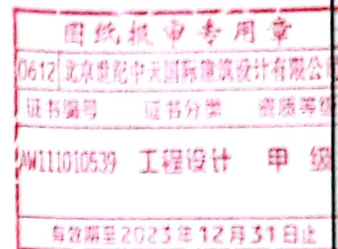 图纸报审专用章
0612 北京世纪中天国际建筑设计有限公
证书编号 证书分类 资质等级
AW111010539 工程设计 甲 级
有效期至2023年12月31日止